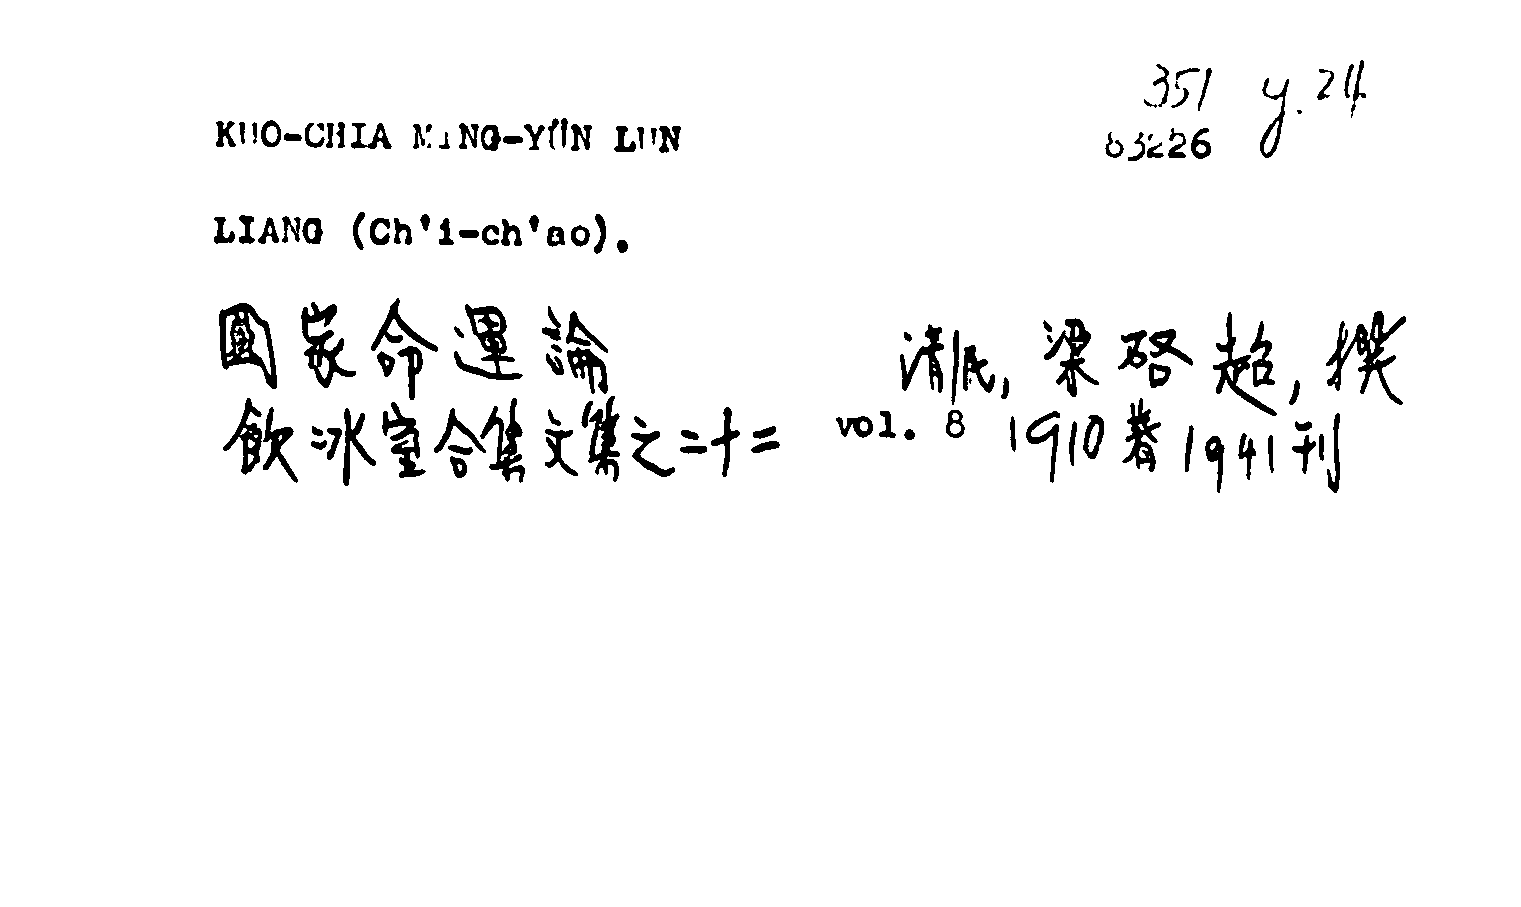 351 y.24
KUO-CHIA MING-YÜN LUN
83226
LIANG (Ch'i-ch'ao).
國家命運論 清/民, 梁啓超, 撰
飲冰室合集文集之二十二 vol. 8 1910著 1941刊